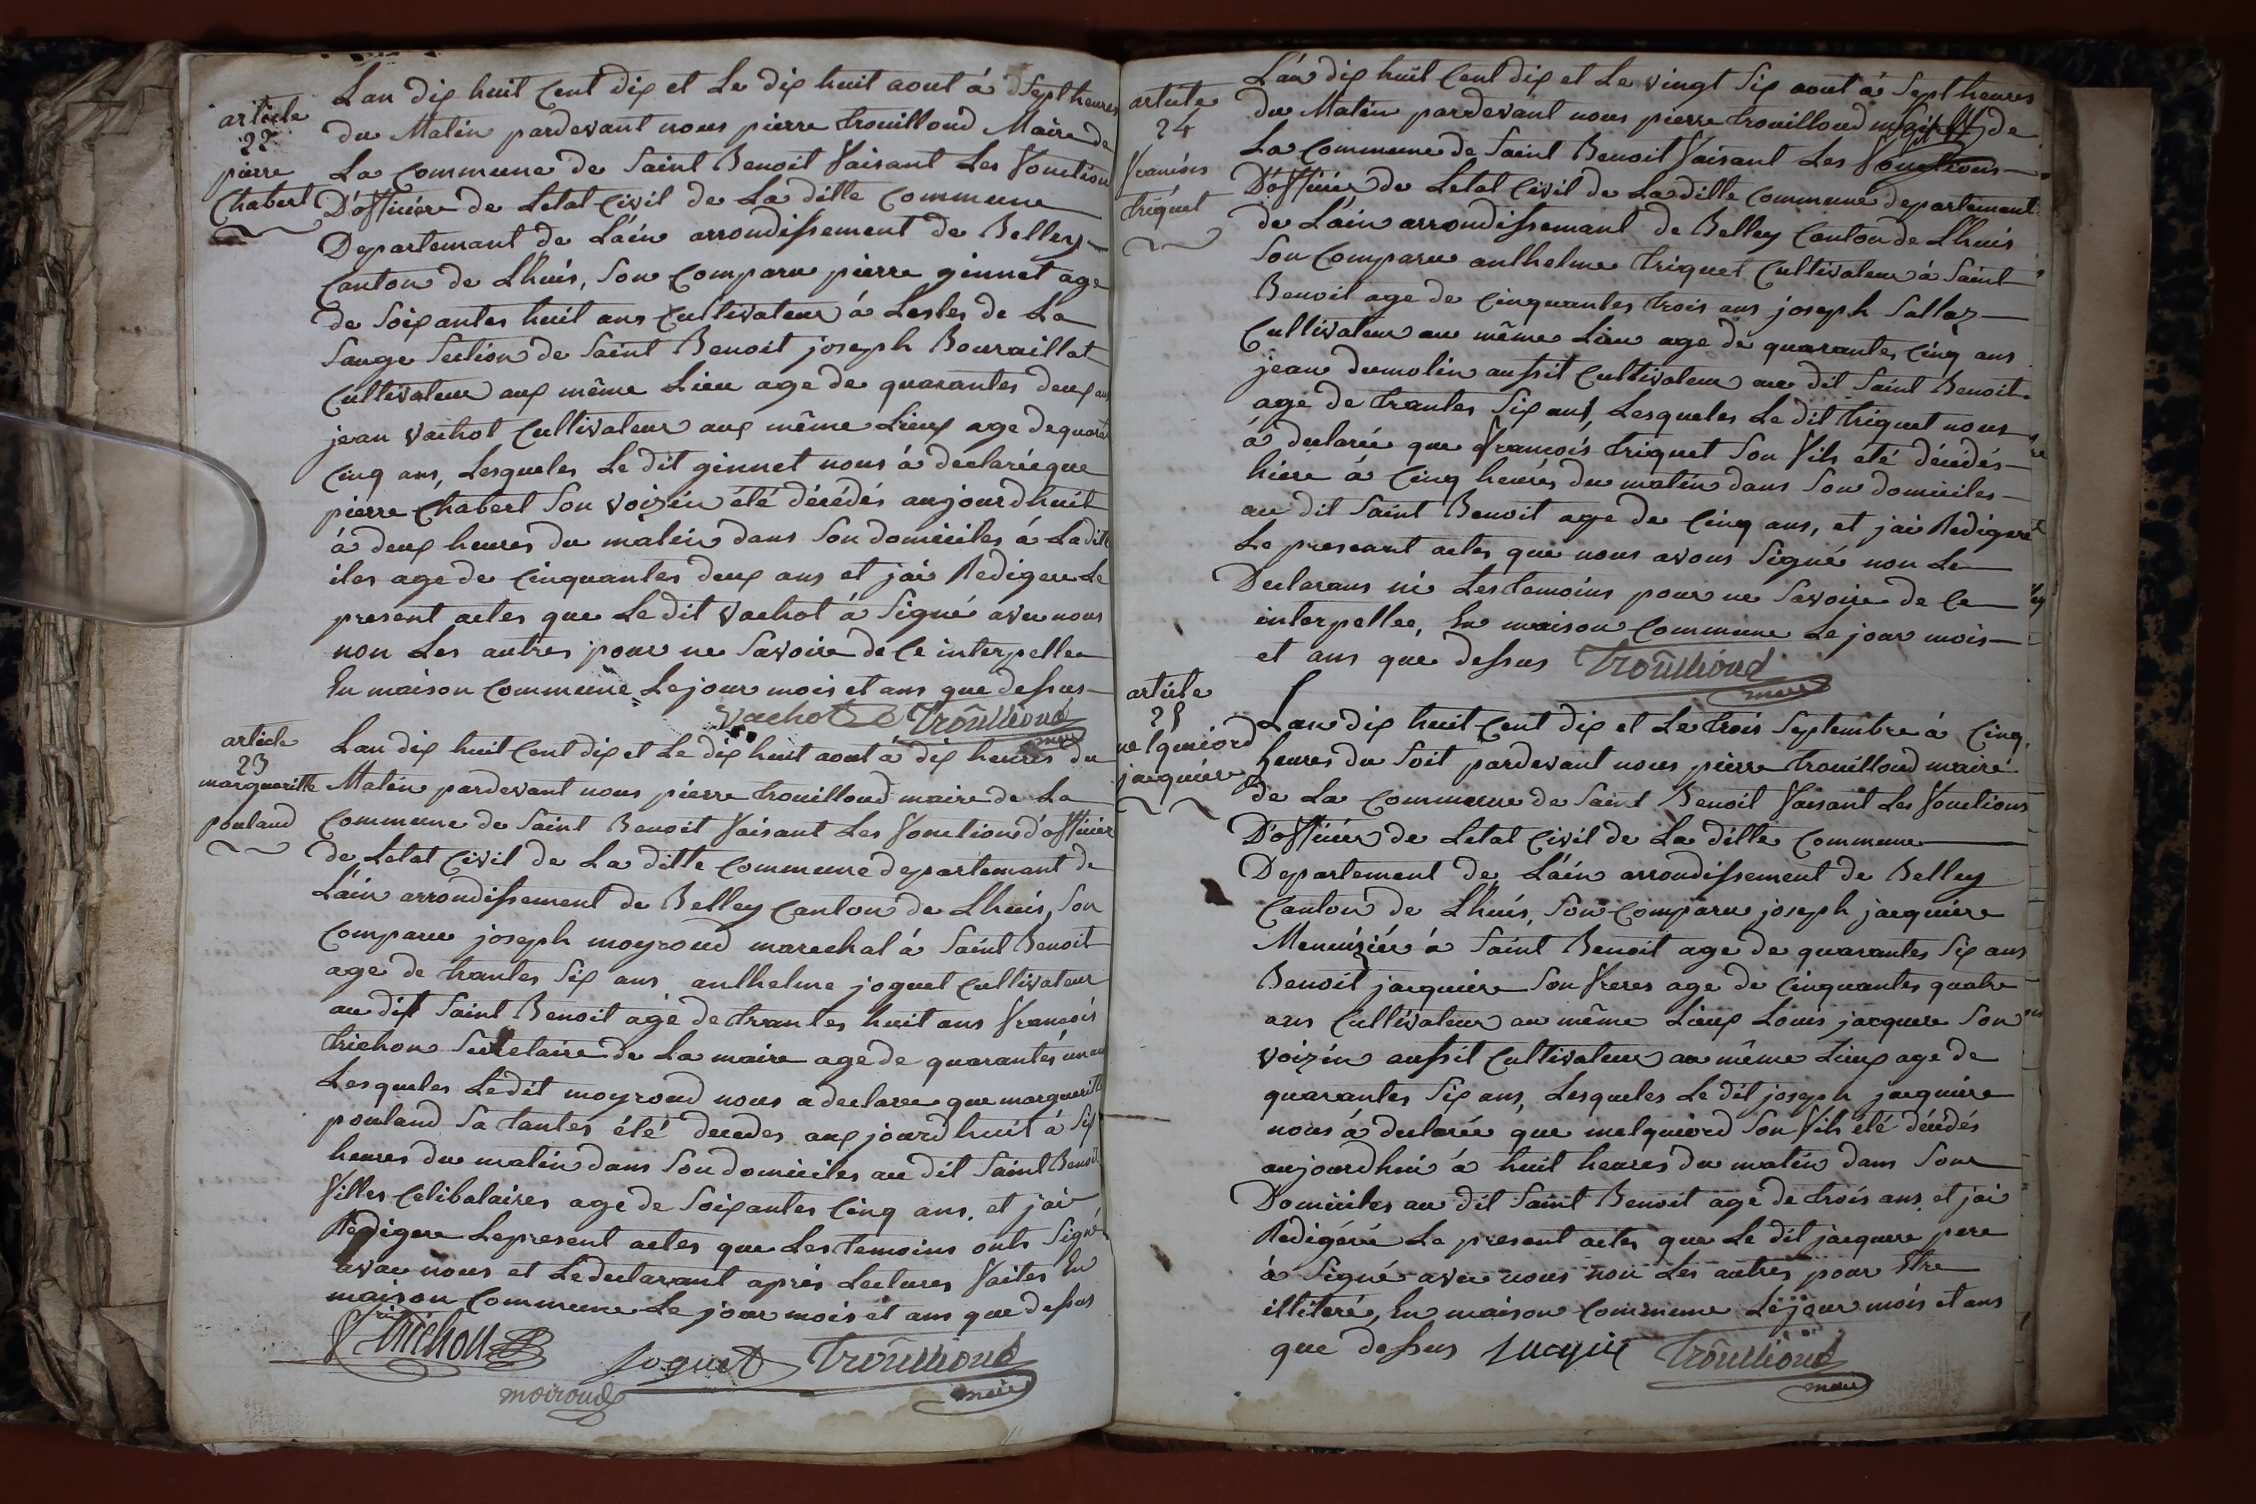 article
22
pierre
Chabert
Lan dix huit Cent dix et Le dix huit aout à Sept heures
du Matin pardevant nous pierre trouilloud Maire de
La Commune de Saint Benoit faisant Les fonction
D'officiére de Letat Civil de La ditte Commune
Departemant de L'áin arrondissement de Belley
Canton de Lhuis, Son Comparu pierre ginnet age
de Soixantes huit ans Cultivateur à Lesles de La
Sauge Section de Saint Benoit joseph Bouraillat
Cultivateur aux même Lieu age de quarantes deux ans
jean vachot Cultivateur aux même Lieux age de quarantes
Cinq ans, Lesqueles Le dit ginnet nous à declarée que
pierre Chabert Son voizin été décédés aujourdhuit
à deux heures du matin dans Son domiciles à La ditte
iles age de Cinquantes deux ans et jai Redigere Le
present actes que Le dit vachot à Signé avec nous
non Les autres pour ne Savoire de Ce interpellee
En maison Commune Le jour mois et ans que dessus
vachot trouilloud
maire
article
23
marqueritte
pouland
Lan dix huit Cent dix et Le dix huit aout à dix heures du
Matin pardevant nous pierre trouilloud maire de La
Commune de Saint Benoit faisant Les fonction d'officier
de Letat Civil de La ditte Commune departemant de
L'áin arrondissement de Belley Canton de Lhuis, Son
Comparu joseph moyroud marechal à Saint Benoit
age de trantes Six ans anthelme joguet Cultivateur
au dit Saint Benoit age de trantes huit ans francois
trichon Secretaire de La maire age de quarantes un ans
Lesqueles Le dit moyroud nous a declare que marqueritte
pouland Sa tantes été decedes aux jourdhuit à Six
heures du matin dans Son domiciles au dit Saint Benoit
filles Celibataires age de Soixantes Cinq ans, et jai
Redigere Le present actes que Les temoins onts Signé
avac nous et Le declarant aprés Lectures faites En
maison Commune Le jour mois et ans que dessus
trichon
joguet trouilloud
moiroud maire
article
24
francois
triquet
L'án dix huit Cent dix et Le vingt Six aout à Sept heures
du Matin pardevant nous pierre trouilloud maire de
La Commune de Saint Benoit faisant Les fonctions
D'officier de Letat Civil de La ditte Commune departement
de L'áin arrondissemant de Belley Canton de Lhuis
Son Comparu anthelme triquet Cultivateur à Saint
Benoit age de Cinquantes trois ans joseph Sallaz
Cultivateur au même Lieu age de quarantes Cinq ans
jean dumolin aussit Cultivateur au dit Saint Benoit
age de trantes Six ans, Lesqueles Le dit triquet nous
à declarée que francois triquet Son fils été décédés
hiere à Cinq heurés du matin dans Son domiciles
au dit Saint Benoit age de Cinq ans, et jai Redigere
Le preseant actes que nous avons Signé non Le
Declarans ni Les temoins pour ne Savoire de Ce
interpellee, En maison Commune Le jour mois
et ans que dessus trouilloud
maire
article
25
melquiord
jacquiére
Lan dix huit Cent dix et Le trois Septembre à Cinq
heures du Soit pardevant nous pierre trouilloud maire
de La Commune de Saint Benoit faisant Les fonctions
D'officiér de Letat Civil de La ditte Commune
Departement de L'áin arrondissement de Belley
Canton de Lhuis, Son Comparu joseph jacquiere
Menuiziér à Saint Benoit age de quarantes Six ans
Benoit jacquiere Son freres age de Cinquantes quatre
ans Cultivateur au même Lieux Louis jacquere Son
voizin aussit Cultivateur au même Lieux age de
quarantes Six ans, Lesqueles Le dit joseph jacquiere
nous à declarée que melquiord Son fils été décédés
aujourdhui à huit heures du matin dans Son
Domiciles au dit Saint Benoit age de trois ans, et jai
Redigéré Le present actes que Le dit jacquere pere
à Signé avec nous non Les autres pour Etre
illiteré, En maison Commune Le jour mois et ans
que dessus trouilloud
maire